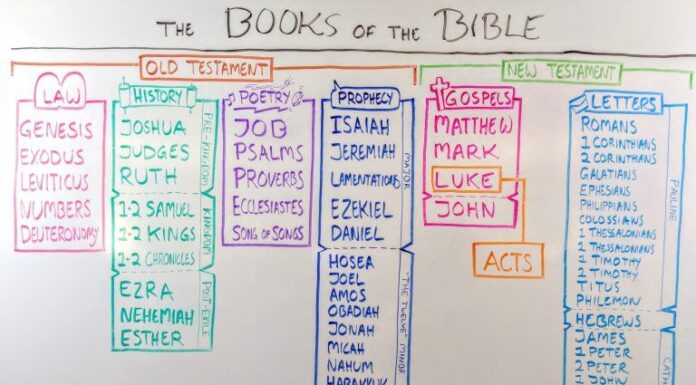 THE BOOKS OF THE BIBLE
OLD TESTAMENT
NEW TESTAMENT
LAW
GENESIS
EXODUS
LEVITICUS
NUMBERS
DEUTERONOMY
HISTORY
JOSHUA
JUDGES
RUTH
PRE-KINGDOM
1-2 SAMUEL
1-2 KINGS
1-2 CHRONICLES
KINGDOM
EZRA
NEHEMIAH
ESTHER
POST-EXILE
POETRY
JOB
PSALMS
PROVERBS
ECCLESIASTES
SONG OF SONGS
PROPHECY
ISAIAH
JEREMIAH
LAMENTATIONS
EZEKIEL
DANIEL
MAJOR
HOSEA
JOEL
AMOS
OBADIAH
JONAH
MICAH
NAHUM
HABAKKUK
"THE TWELVE" MINOR
GOSPELS
MATTHEW
MARK
LUKE
JOHN
ACTS
LETTERS
ROMANS
1 CORINTHIANS
2 CORINTHIANS
GALATIANS
EPHESIANS
PHILIPPIANS
COLOSSIANS
1 THESSALONIANS
2 THESSALONIANS
1 TIMOTHY
2 TIMOTHY
TITUS
PHILEMON
PAULINE
HEBREWS
JAMES
1 PETER
2 PETER
1 JOHN
CATH